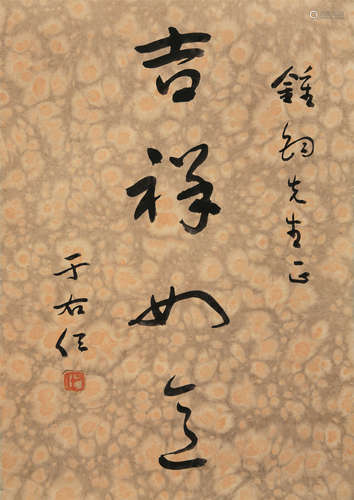 鍾鈞先生正
吉祥如意
于右任